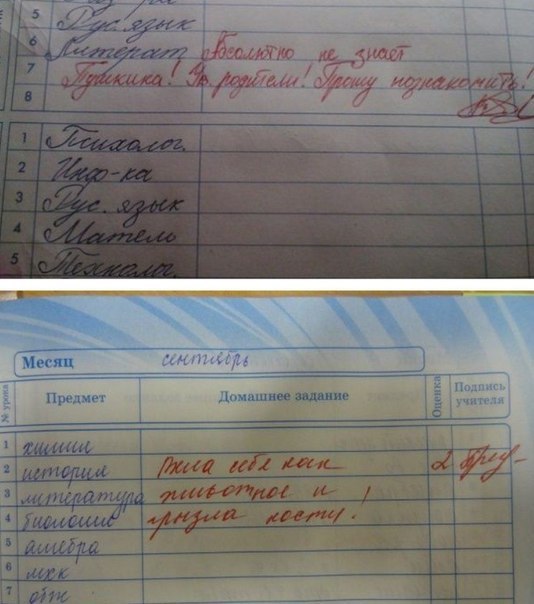 5 Рус. язык
6 Литерат Абсолютно не знает
7 Пушкина! Ув. родители! Прошу познакомить!
8
1 Психолог.
2 Инф-ка
3 Рус. язык
4 Матем
5 Технолог.
Месяц сентябрь
№ урока Предмет Домашнее задание Оценка Подпись учителя
1 химия
2 история Вела себя как 2
3 литература животное и
4 биология грызла кости!
5 алгебра
6 мхк
7 обж